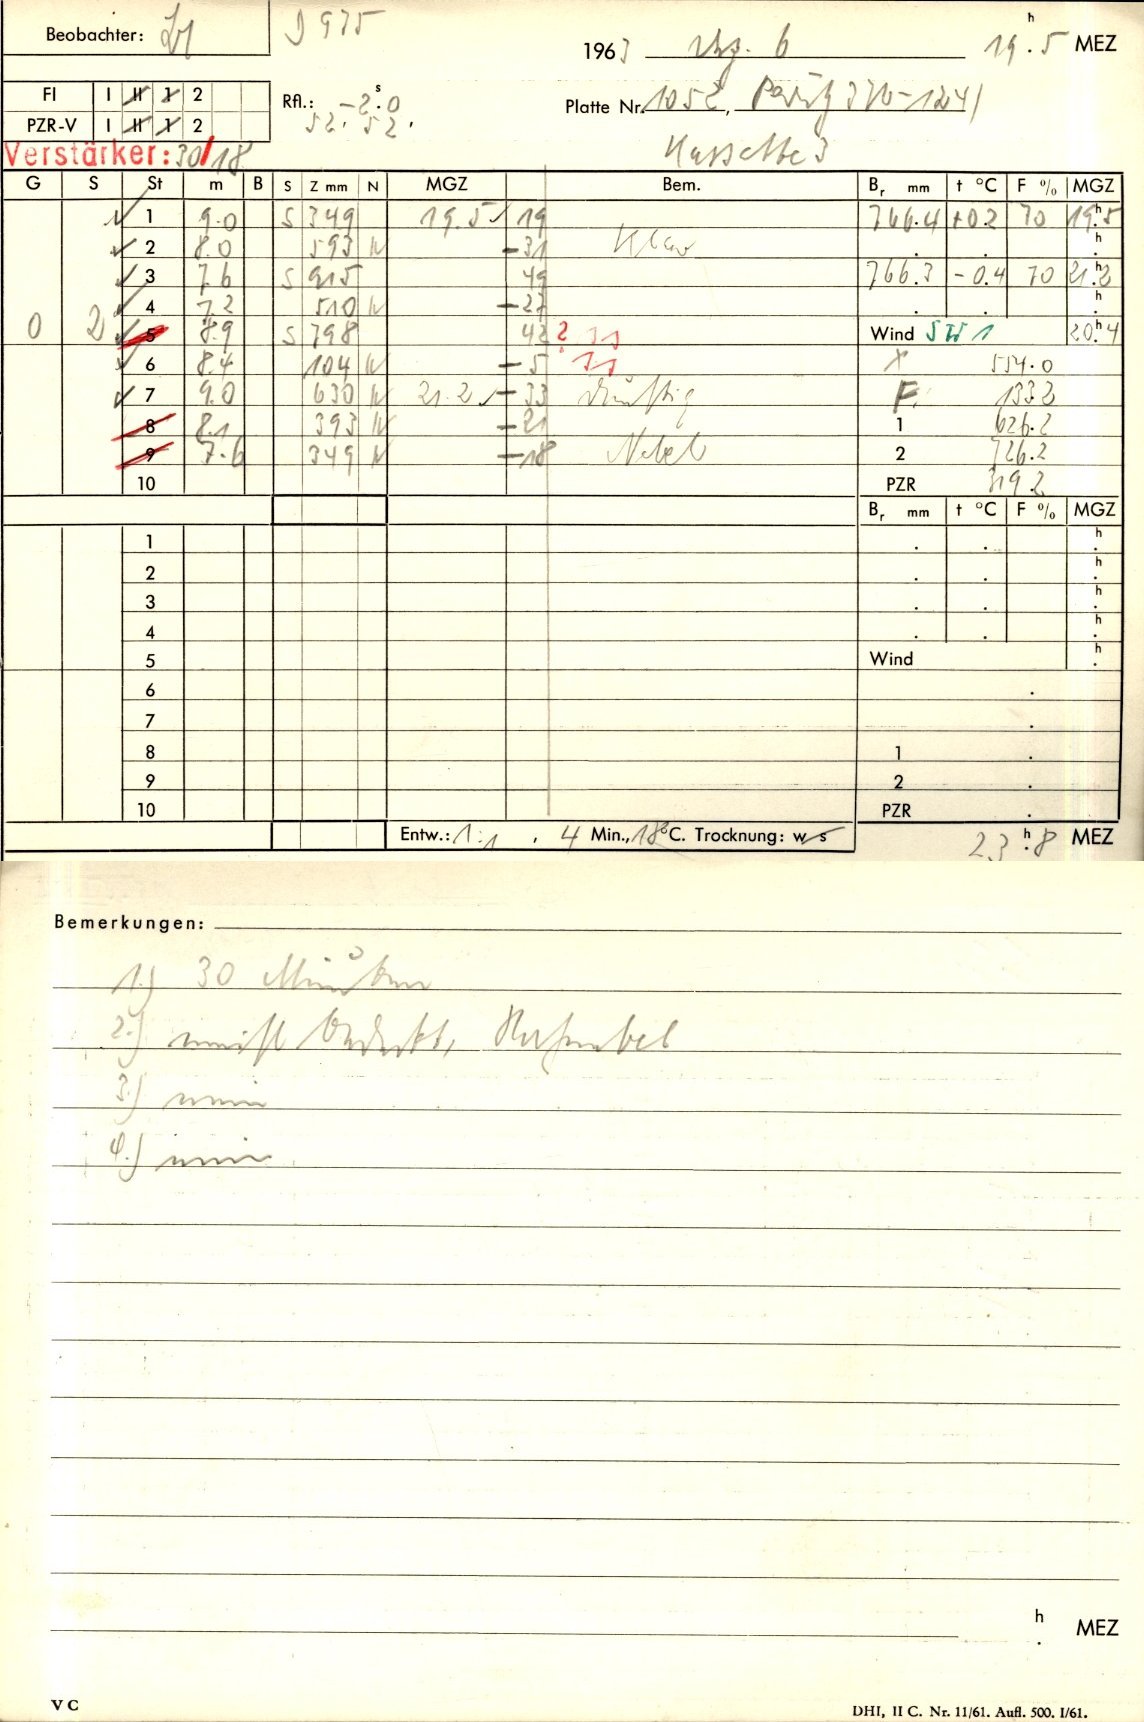 Beobachter:
D 975
1963 6 19.5 h MEZ
FI I II 1 2
PZR-V I II 1 2
Rfl.: -2.0 s
52. 52.
Platte Nr. 1052,
Verstärker: 30/18
Kassette 3
G S St m B S Z mm N MGZ Bem. Br mm t °C F % MGZ
1 9.0 S 349 19.5 19 766.4 +0.2 70 19.5 h
2 8.0 593 N -31 Klar h
3 7.6 S 915 49 766.3 -0.4 70 21.2 h
4 7.2 510 N -27 h
0 2 5 8.9 S 798 42 ? Wind SW 1 20.4 h
6 8.4 104 N -5 554.0
7 9.0 630 N 21.2 -33 dunstig F. 133.2
8 8.1 393 N -21 1 626.2
9 7.6 349 N -18 Nebel 2 726.2
10 PZR 319.2
Br mm t °C F % MGZ
1 h
2 h
3 h
4 h
5 Wind h
6
7
8 1
9 2
10 PZR
Entw.: 1:1, 4 Min., 18°C. Trocknung: w s 23.8 h MEZ
Bemerkungen:
1.) 30 Minuten
2.) meist bedeckt, Hochnebel
3.) nein
4.) nein
h MEZ
V C
DHI, II C. Nr. 11/61. Aufl. 500. I/61.